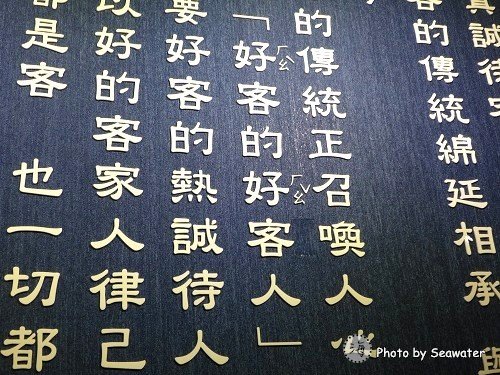 真誠待
客的傳統綿延相承與
的傳統正召喚人心
「好ㄏㄠˋ客的好ㄏㄠˇ客人」
要好客的熱誠待人
以好的客家人律己
都是客 也一切都
Photo by Seawater